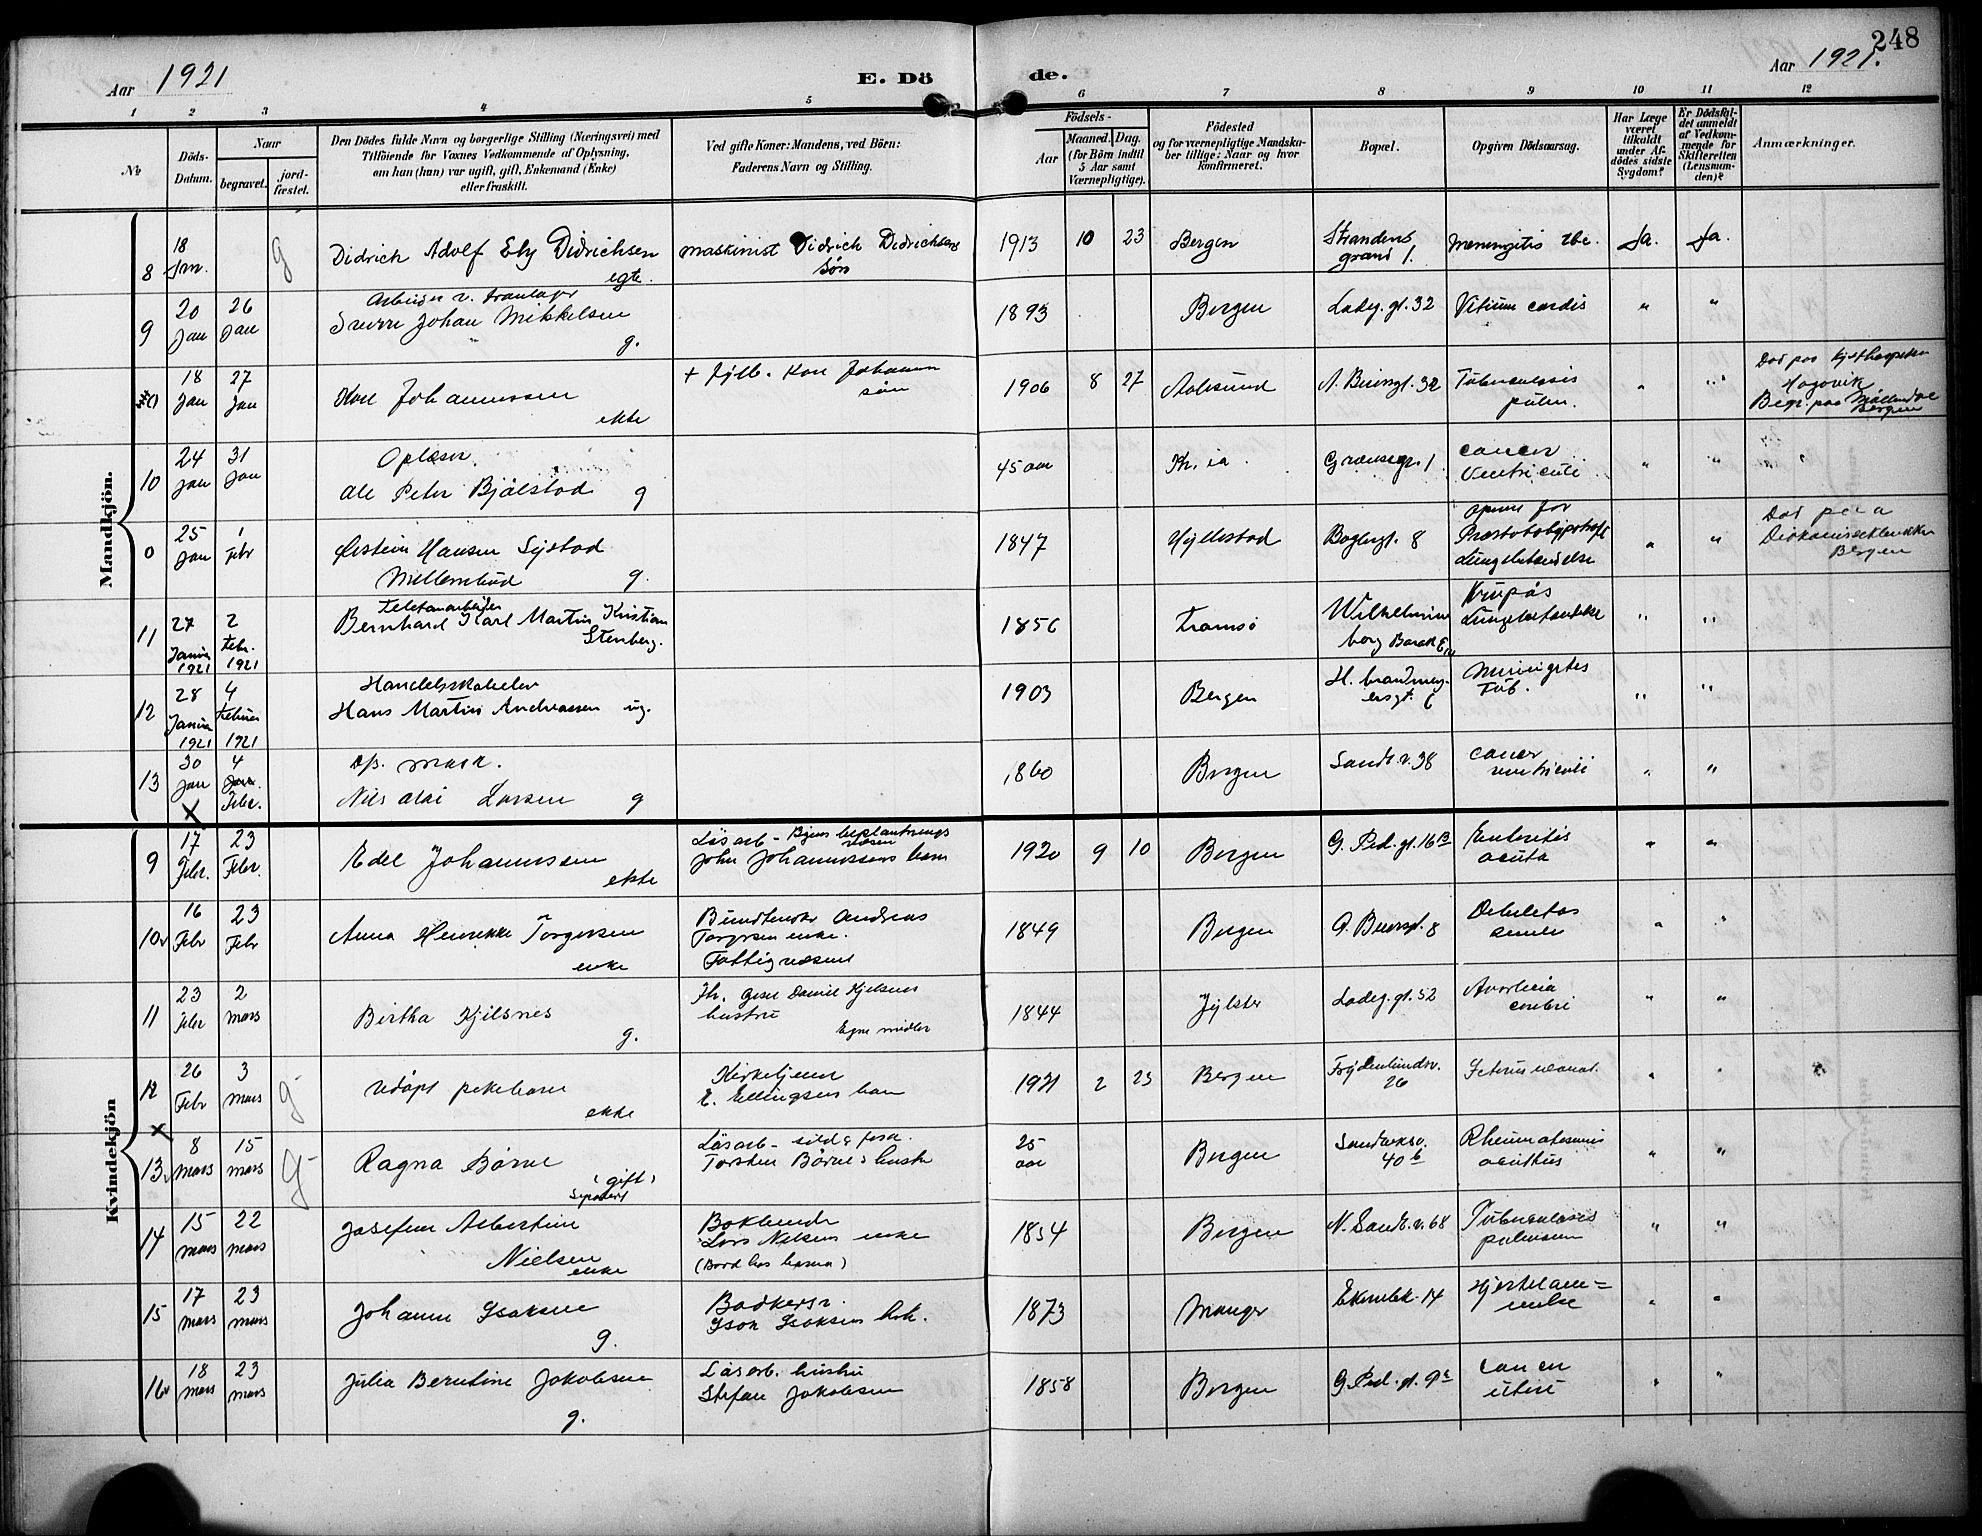 248
Aar 1921
E. Döde.
Aar 1921.
1 2 3 4 5 6 7 8 9 10 11 12
No
Döds-Datum.
Naar
begravet.
jord-fæstet.
Den Dödes fulde Navn og borgerlige Stilling (Næringsvei) med
Tilföiende for Voxnes Vedkommende af Oplysning,
om han (hun) var ugift, gift, Enkemand (Enke)
eller fraskilt.
Ved gifte Koner: Mandens, ved Börn:
Faderens Navn og Stilling.
Födsels-
Aar
Maaned. Dag.
(for Börn indtil
5 Aar samt
Værnepligtige).
Födested
og for værnepligtige Mandska-
ber tillige: Naar og hvor
konfirmeret.
Bopæl.
Opgiven Dödsaarsag.
Har Læge
været
tilkaldt
under Af-
dödes sidste
Sygdom?
Er Dödsfal-
det anmeldt
af Vedkom-
mende for
Skifteretten
(Lensman-
den)?
Anmærkninger.
Mandkjön.
8 18 Jan. g Didrich Adolf Eby Didrichsen egte. maskinist Didrich Didrichsens søn 1913 10 23 Bergen Strandens grand 1. Meningitis tbc. Ja. Ja.
9 20 Jan 26 Jan Arbeider v.
Sverre Johan Mikkelsen g. 1893 Bergen Ladeg. gt. 32 Vitium cordis " "
18 Jan 27 Jan Kåre Johannessen ekte + Johannes søn 1906 8 27 Aalesund 32 Tuberculosis pulm. " " Død paa Hagavik
Begr. paa Møllendal Bergen
10 24 Jan 31 Jan Oplæser.
Ole Peter Bjølstad g 45 aar Kr.ia. Grænsegr. 1 cancer ventriculi " "
0 25 Jan 1 Febr Østein Hansen g. 1847 Hyllestad 8 Lungebetændelse " " Død paa Bergen
11 27 Januar 1921 2 Febr. 1921 Telefonarbeider
Bernhard Karl Martin Kristian Stenberg. 1856 Tromsø Wilhelmine borg Barak Krupøs Lungebetændelse " "
12 28 Januar 1921 4 Februar 1921 Handelsskoleelev
Hans Martin Andreassen ug. 1903 Bergen Meningites Tub. " "
13 30 Jan 4 Jan. Febr. d/s. mask.
Nils Larsen g 1860 Bergen Sandv. v. 38 cancer ventriculi " "
Kvindekjön
9 17 Febr. 23 Febr. Edel Johannessen ekte Løsarb - Byens beplantnings væsen
John Johannessens barn 1920 9 10 Bergen G. Ped. gt. 16 B Enteritis acuta " "
10 16 Febr 23 Febr Anna Henrikke Torgersen enke Andreas
Torgersen enke.
Fattigvæsenet 1849 Bergen 8 Debilitas senilis " "
11 23 Febr 2 mars Birtha Kjelsnes g. Daniel Kjelsnes
hustru
Egne midler 1844 Jølster Ladeg. gt. 52 cerebri " "
12 26 Febr 3 mars g. udøpt pikebarn ekte Kirketjener
E. Ellingsens barn 1921 2 23 Bergen Frydenlundsv. 26 Icterus neonat. " "
13 8 mars 15 mars g Ragna Børve (gift) separert Løsarb -
Torsten Børve's hustr 25 aar Bergen Sandviksv. 40 b Rheumatismus " "
14 15 mars 22 mars Josefine Albertine
Nielsen enke Lars Nielsens enke
(Bord hos barna) 1854 Bergen N. Sandv. v. 68 Tuberculosis pulmonum " "
15 17 mars 23 mars Johanne Isaksen g. Bødkersv.
Isak Isaksens hst. 1873 Manger 14 Hjertelam=melse " "
16 18 mars 23 mars Julia Berntine Jakobsen g. Løsarb. hustru
Stefan Jakobsen 1858 Bergen G. Ped. gt. 9 c cancer uteri " "